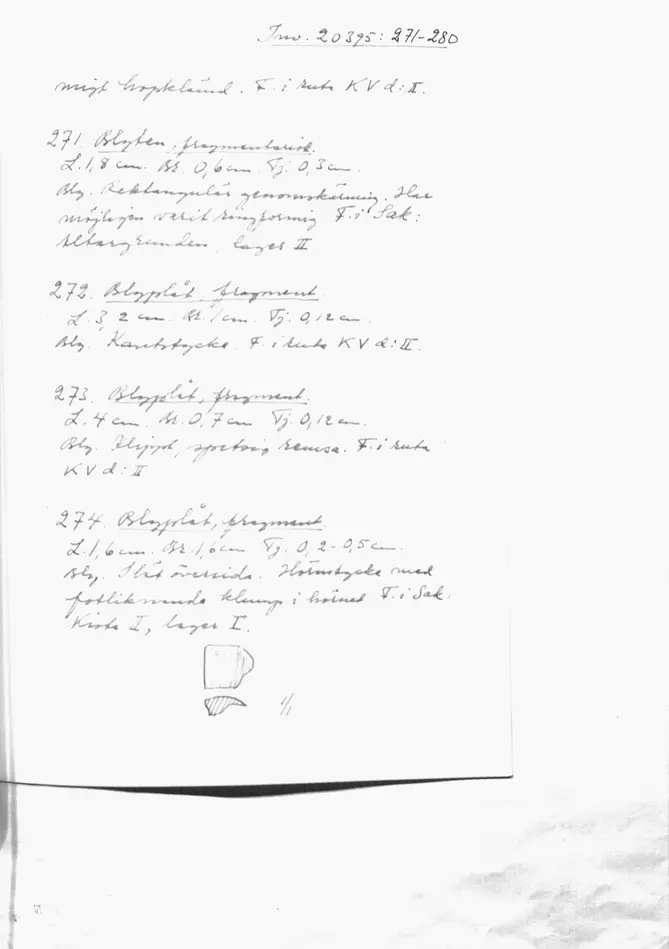 Inv. 20395: 271-280
migt hopklämd. F. i ruta KV d: II.
271. Blyten, fragmentarisk.
L. 1,8 cm. Br. 0,6 cm. Tj. 0,3 cm.
Bly. Rektangulär genomskärning. Har
möjligen varit ringformig F. i Sak:
Altargrunden, lager II
272. Blyplåt, fragment.
L. 3,2 cm. Br. 1 cm. Tj. 0,12 cm.
Bly. Kantstycke. F. i ruta KV d: II.
273. Blyplåt, fragment.
L. 4 cm. Br. 0,7 cm. Tj. 0,12 cm.
Bly. Klippt, spetsig remsa. F. i ruta
KV d: II
274. Blyplåt, fragment
L. 1,6 cm. Br. 1,6 cm. Tj. 0,2-0,5 cm.
Bly. Slät översida. Hörnstycke med
fotliknande klump i hörnet F. i Sak:
II, lager I.
1/1